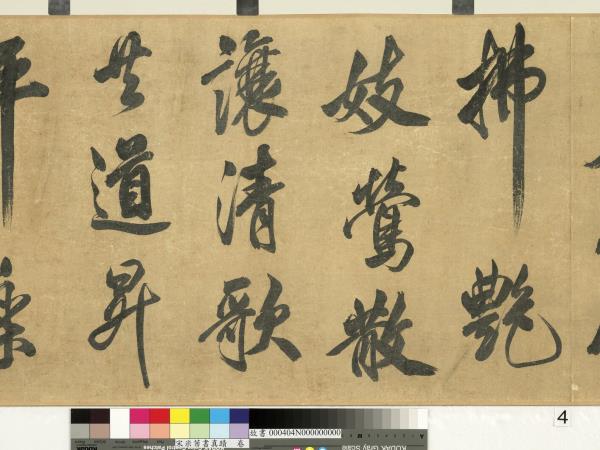 拂艷
妓鶯散
讓清歌
共道昇
平樂
宋米芾書真蹟 卷
故書 000404N000000000
KODAK Gray Scale
4